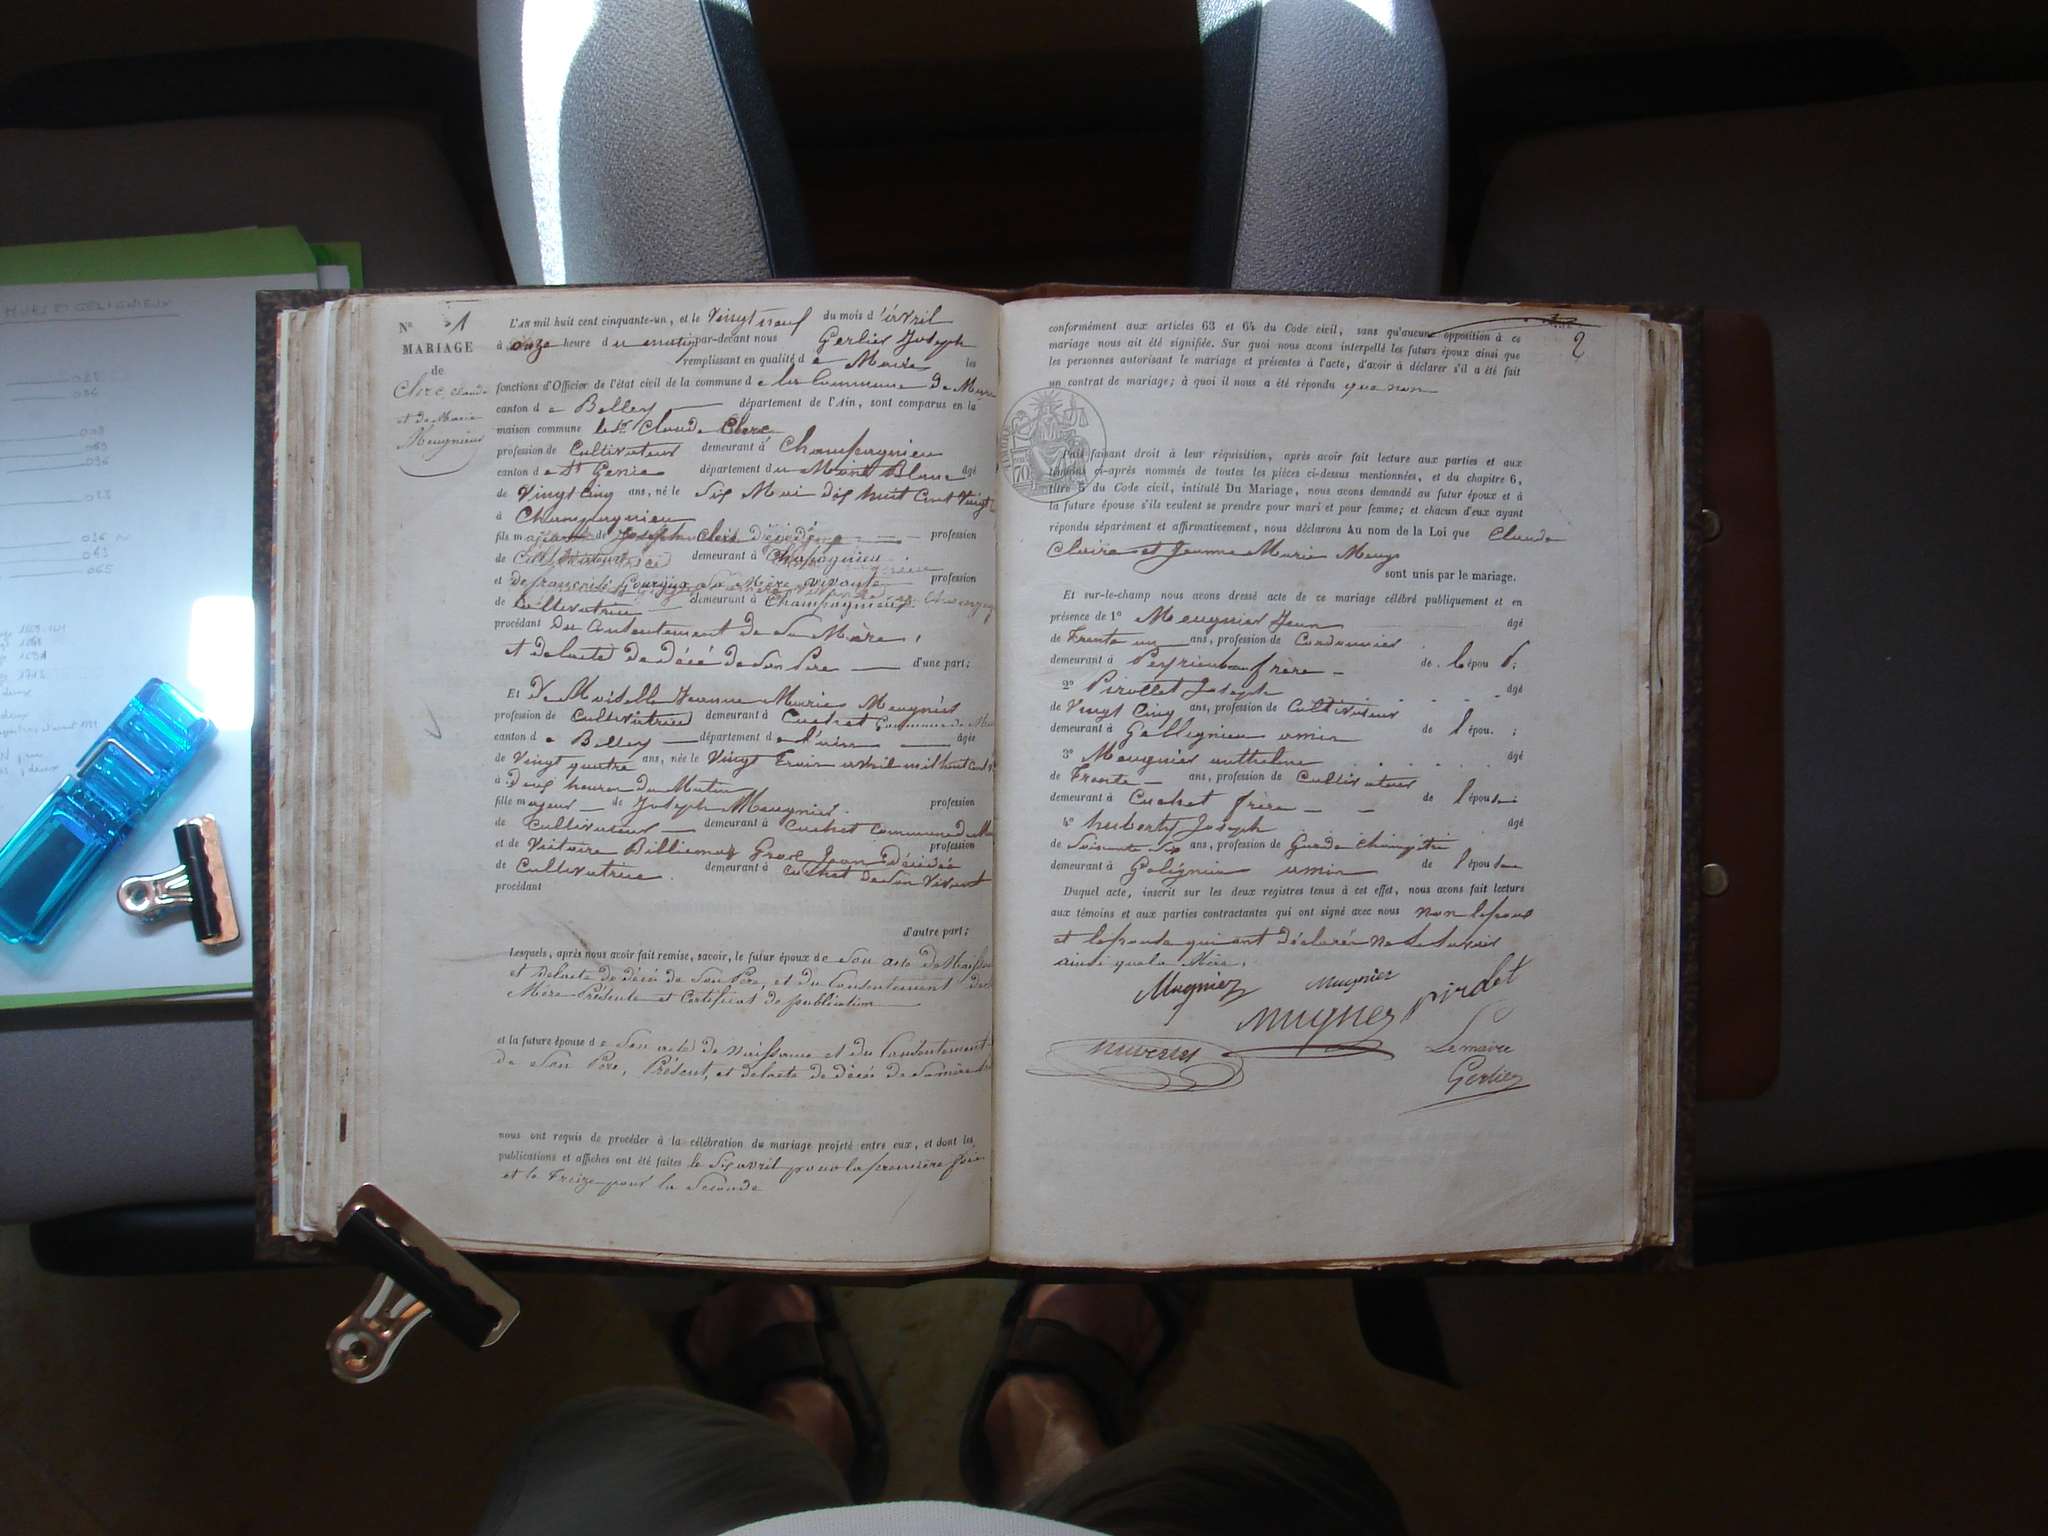 MURS ET GELIGNIEUX
N° 1
MARIAGE
de
Clerc, Claude
et de Marie
Meugnier
L'AN mil huit cent cinquante-un, et le Vingt neuf du mois d'avril
à onze heure du matin par-devant nous Gerlier Joseph
remplissant en qualité de Maire les
fonctions d'Officier de l'état civil de la commune de la Commune de Murs
canton de Belley département de l'Ain, sont comparus en la
maison commune le Sr Claude Clerc
profession de Cultivateur demeurant à Champagnieu
canton de St Genie département du Mont Blanc âgé
de Vingt Cinq ans, né le Six Mai dix huit Cent Vingt
à Champagnieu
fils majeur de Joseph Clerc Décédé profession
de Cultivateur demeurant à Chapagnieu
et de françoise Gourjux Sa Mère vivante profession
de Cultivatrice demeurant à Champagnieux
procédant du Contentement de Sa Mère,
et delacte de Décé de Son Père d'une part;
Et De Moidelle Jeanne Marie Meugnier
profession de Cultivatrice demeurant à Cuchet Commune de Mu
canton de Belley département de l'ain âgée
de Vingt quatre ans, née le Vingt Trois avril mil huit cent
à Deux heures du Matin
fille majeur de Joseph Meugnier profession
de Cultivateur demeurant à Cuchet commune de Mu
et de Victoire Billiemaz Gros Jean Décédée profession
de Cultivatrice demeurant à Cuchet de Son Vivant
procédant
d'autre part;
Lesquels, après nous avoir fait remise, savoir, le futur époux de Son acte de Naissa
et delacte de décé de Son Père, et du Consentement de
Mère Présente et Certificat de publication
et la future épouse de Son acte de naissance et du Consentement
de Son Père, Présent, et delacte de décée de Sa mère
nous ont requis de procéder à la célébration du mariage projeté entre eux, et dont les
publications et affiches ont été faites le Six avril pour la première fois
et le Treize pour la Seconde
2
conformément aux articles 63 et 64 du Code civil, sans qu'aucune opposition à ce
mariage nous ait été signifiée. Sur quoi nous avons interpellé les futurs époux ainsi que
les personnes autorisant le mariage et présentes à l'acte, d'avoir à déclarer s'il a été fait
un contrat de mariage; à quoi il nous a été répondu que non
Puis faisant droit à leur réquisition, après avoir fait lecture aux parties et aux
témoins ci-après nommés de toutes les pièces ci-dessus mentionnées, et du chapitre 6,
titre 5 du Code civil, intitulé Du Mariage, nous avons demandé au futur époux et à
la future épouse s'ils veulent se prendre pour mari et pour femme; et chacun d'eux ayant
répondu séparément et affirmativement, nous déclarons Au nom de la Loi que Claude
Claire et Jeanne Marie Meugn
sont unis par le mariage.
Et sur-le-champ nous avons dressé acte de ce mariage célébré publiquement et en
présence de 1° Meugnier Jean âgé
de Trente un ans, profession de Cordonnier
demeurant à Peyrieu frère de l'épou
2° Pirollet Joseph âgé
de Vingt Cinq ans, profession de Cultivateur
demeurant à Gellignieu amin de l'épou. ;
3° Meugnier antthelme âgé
de Trente ans, profession de Cultivateur
demeurant à Cuchet frère de l'épouse
4° huberty Joseph âgé
de Soixante Six ans, profession de Garde Champitre
demeurant à Gelignieu amin de l'épouse
Duquel acte, inscrit sur les deux registres tenus à cet effet, nous avons fait lecture
aux témoins et aux parties contractantes qui ont signé avec nous non lepoux
et lepouse qui ont déclarer ne le Savoir
ainsi que la Mère.
Mugnier Mugnier
Mugner pirolet
Le maire
Gerlier